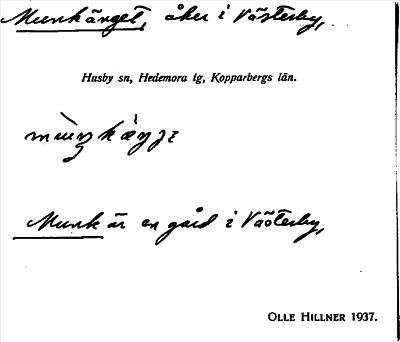 Munkänget, åker i Västerby,
Husby sn, Hedemora tg, Kopparbergs län.
Munk är en gård i Västerby,
OLLE HILLNER 1937.